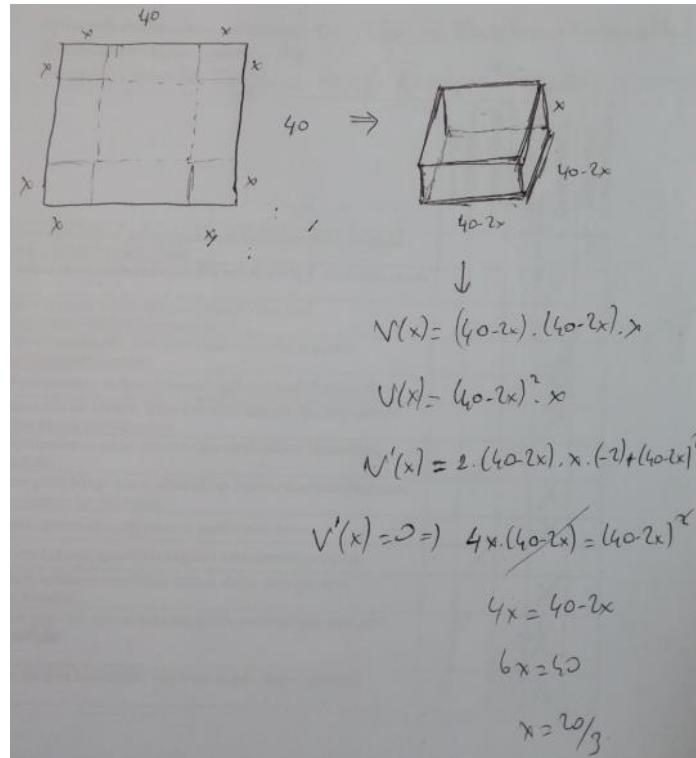 40
x x
x x
40 ⇒
x
40-2x
x x
40-2x
x x
↓
V(x) = (40-2x) . (40-2x) . x
V(x) = (40-2x)² . x
V'(x) = 2 . (40-2x) . x . (-2) + (40-2x)²
V'(x) = 0 => 4x . (40-2x) = (40-2x)²
4x = 40-2x
6x = 40
x = 20/3